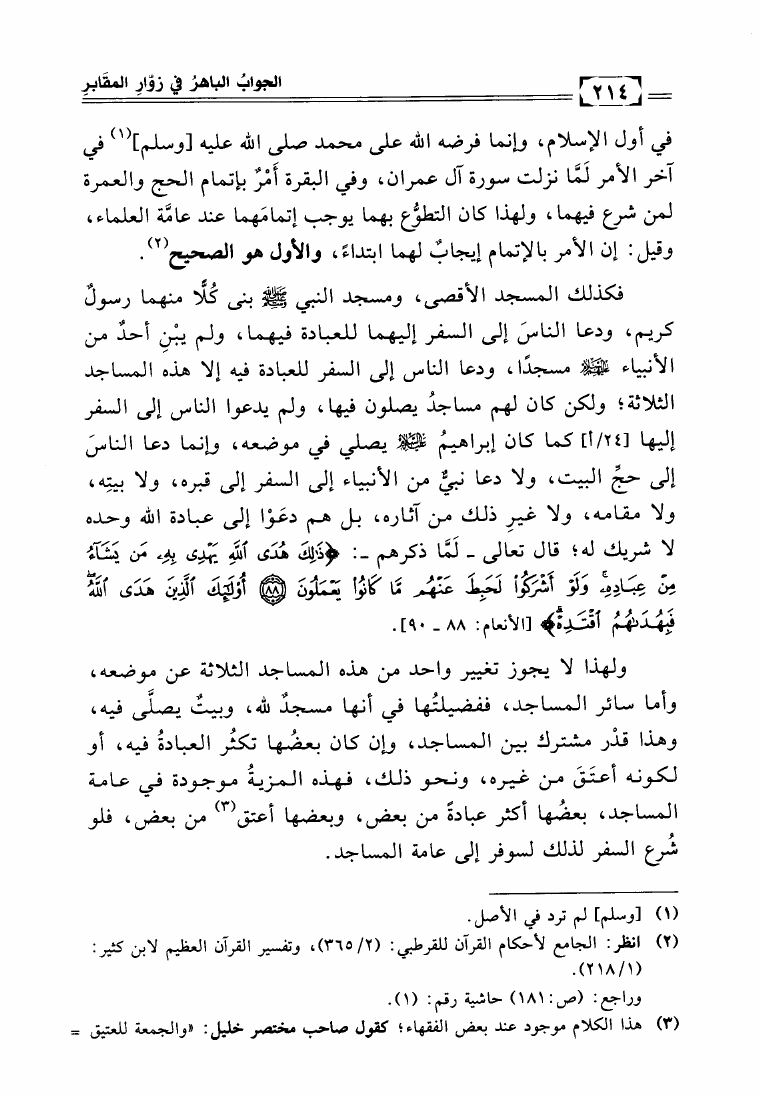 ٢١٤
الجوابُ الباهرُ في زوّارِ المقَابرِ
في أول الإسلام، وإنما فرضه الله على محمد صلى الله عليه [وسلم](١) في
آخر الأمر لَمَّا نزلت سورة آل عمران، وفي البقرة أَمْرٌ بإتمام الحج والعمرة
لمن شرع فيهما، ولهذا كان التطوُّع بهما يوجب إتمامَهما عند عامَّة العلماء،
وقيل: إن الأمر بالإتمام إيجابٌ لهما ابتداءً، والأول هو الصحيح(٢).
فكذلك المسجد الأقصى، ومسجد النبي ﷺ بنى كُلًّا منهما رسولٌ
كريم، ودعا الناسَ إلى السفر إليهما للعبادة فيهما، ولم يبْنِ أحدٌ من
الأنبياء ﷺ مسجدًا، ودعا الناس إلى السفر للعبادة فيه إلا هذه المساجد
الثلاثة؛ ولكن كان لهم مساجدُ يصلون فيها، ولم يدعوا الناس إلى السفر
إليها [٢٤/أ] كما كان إبراهيمُ ﷺ يصلي في موضعه، وإنما دعا الناسَ
إلى حجِّ البيت، ولا دعا نبيٌّ من الأنبياء إلى السفر إلى قبره، ولا بيتِه،
ولا مقامه، ولا غيرِ ذلك من آثاره، بل هم دعَوْا إلى عبادة الله وحده
لا شريك له؛ قال تعالى ـ لَمَّا ذكرهم ـ: ﴿ذَٰلِكَ هُدَى ٱللَّهِ يَهْدِى بِهِۦ مَن يَشَآءُ
مِنْ عِبَادِهِۦۚ وَلَوْ أَشْرَكُوا۟ لَحَبِطَ عَنْهُم مَّا كَانُوا۟ يَعْمَلُونَ ﴿٨٨﴾ أُو۟لَٰٓئِكَ ٱلَّذِينَ هَدَى ٱللَّهُۖ
فَبِهُدَىٰهُمُ ٱقْتَدِهْۗ﴾ [الأنعام: ٨٨ ـ ٩٠].
ولهذا لا يجوز تغيير واحد من هذه المساجد الثلاثة عن موضعه،
وأما سائر المساجد، ففضيلتُها في أنها مسجدٌ لله، وبيتٌ يصلَّى فيه،
وهذا قدْر مشترك بين المساجد، وإن كان بعضُها تكثُر العبادةُ فيه، أو
لكونه أعتَقَ من غيره، ونحو ذلك، فهذه المزيةُ موجودة في عامة
المساجد، بعضُها أكثر عبادةً من بعض، وبعضها أعتق(٣) من بعض، فلو
شُرع السفر لذلك لسوفر إلى عامة المساجد.
(١) [وسلم] لم ترد في الأصل.
(٢) انظر: الجامع لأحكام القرآن للقرطبي: (٣٦٥/٢)، وتفسير القرآن العظيم لابن كثير:
(٢١٨/١).
وراجع: (ص: ١٨١) حاشية رقم: (١).
(٣) هذا الكلام موجود عند بعض الفقهاء؛ كقول صاحب مختصر خليل: «والجمعة للعتيق =